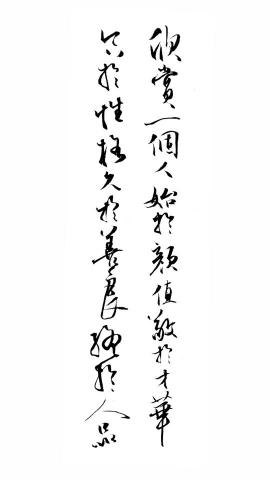 欣賞一個人始於顏值敬於才華
合於性格久於善良終於人品